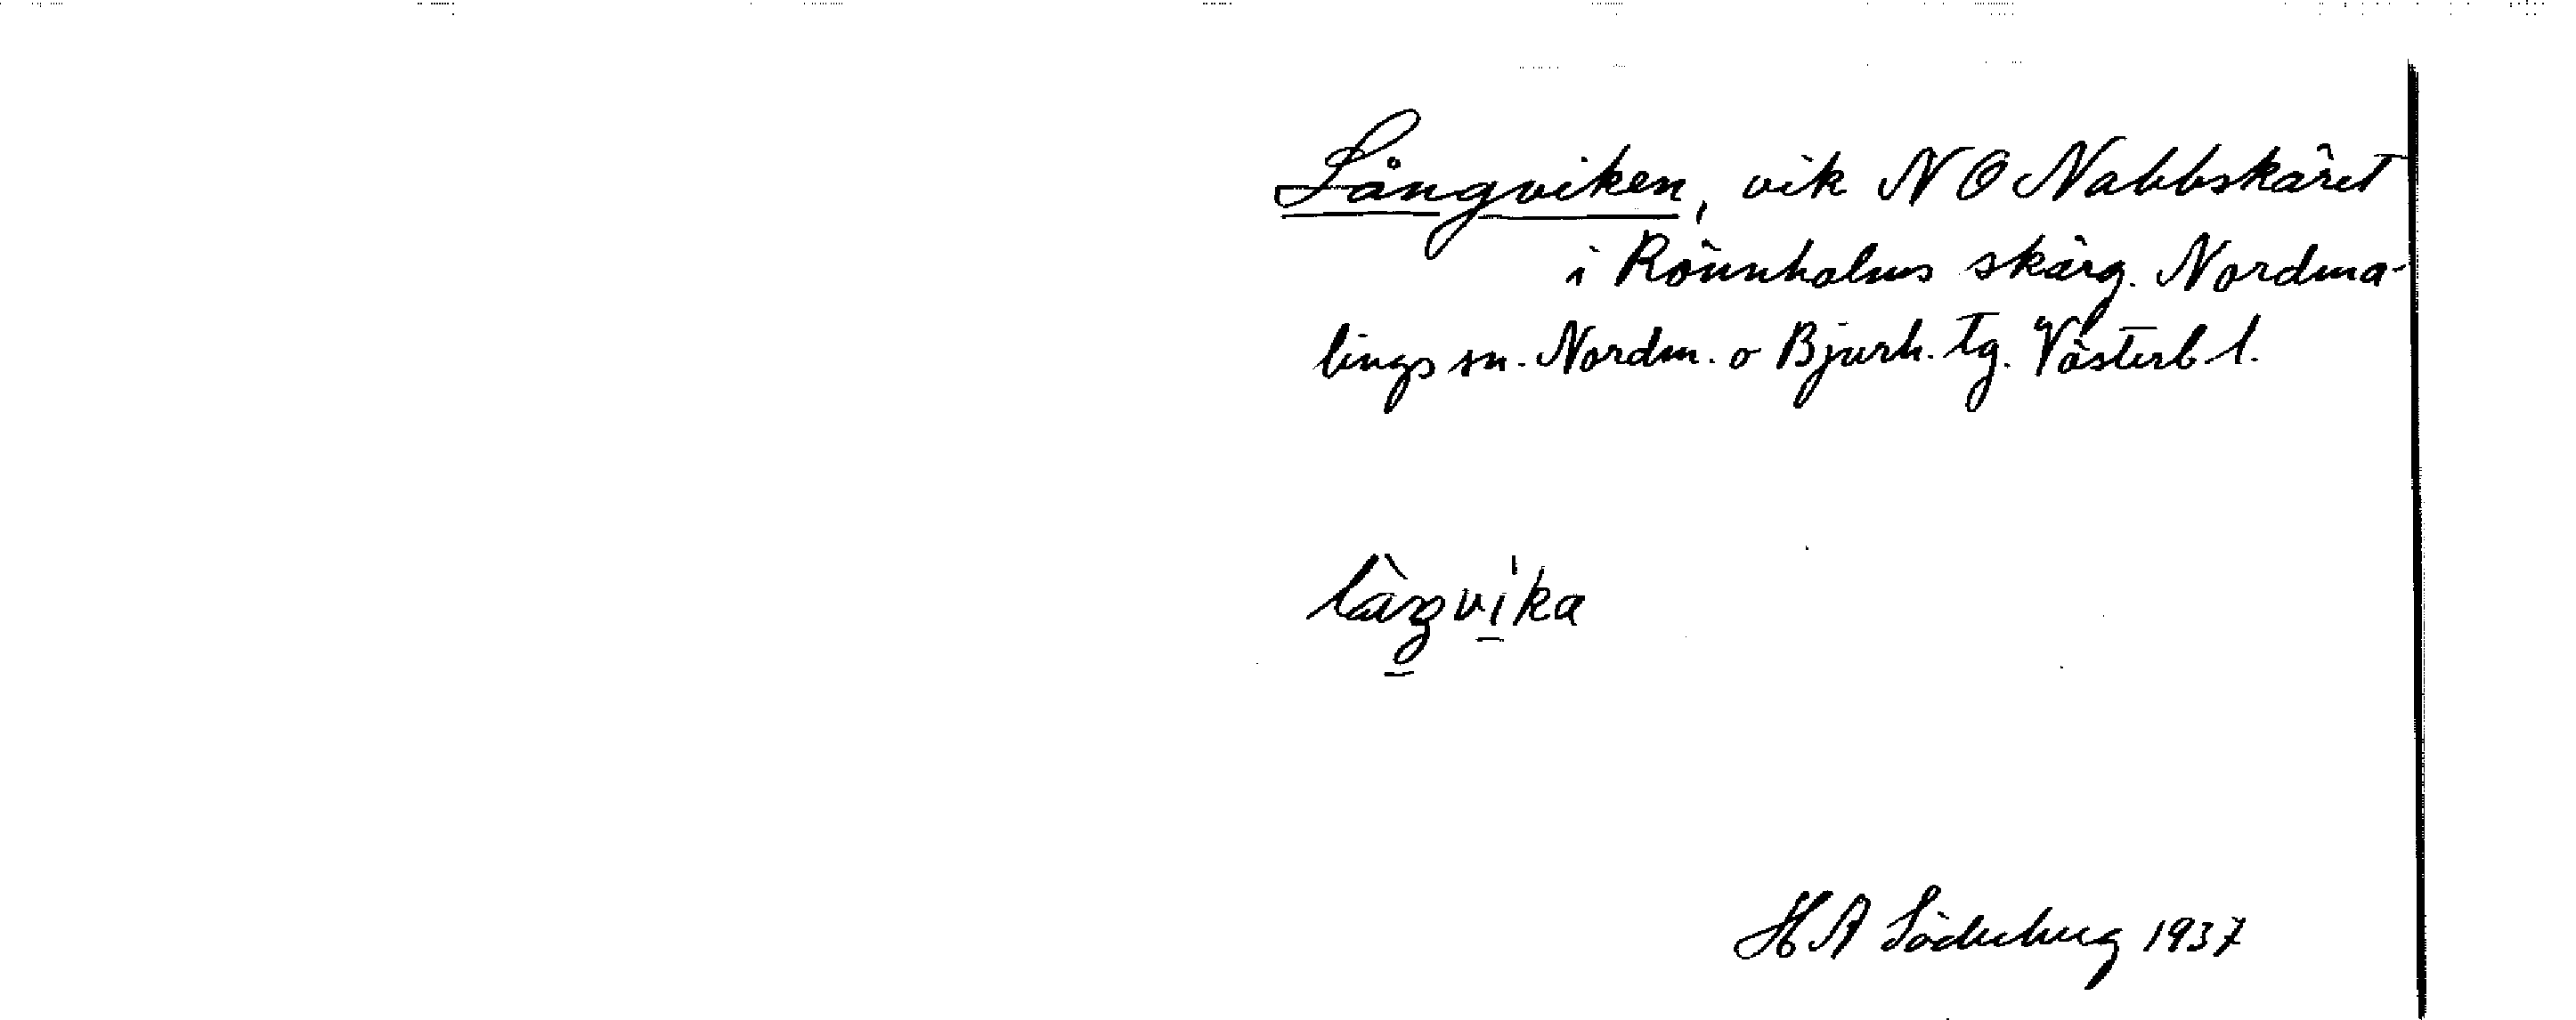 Långviken, vik NO Nabbskäret
i Rönnholms skärg. Nordma-
lings sn. Nordm. o Bjurh. tg. Västerb l.
làŋvi̠ka
H A Söderberg 1937